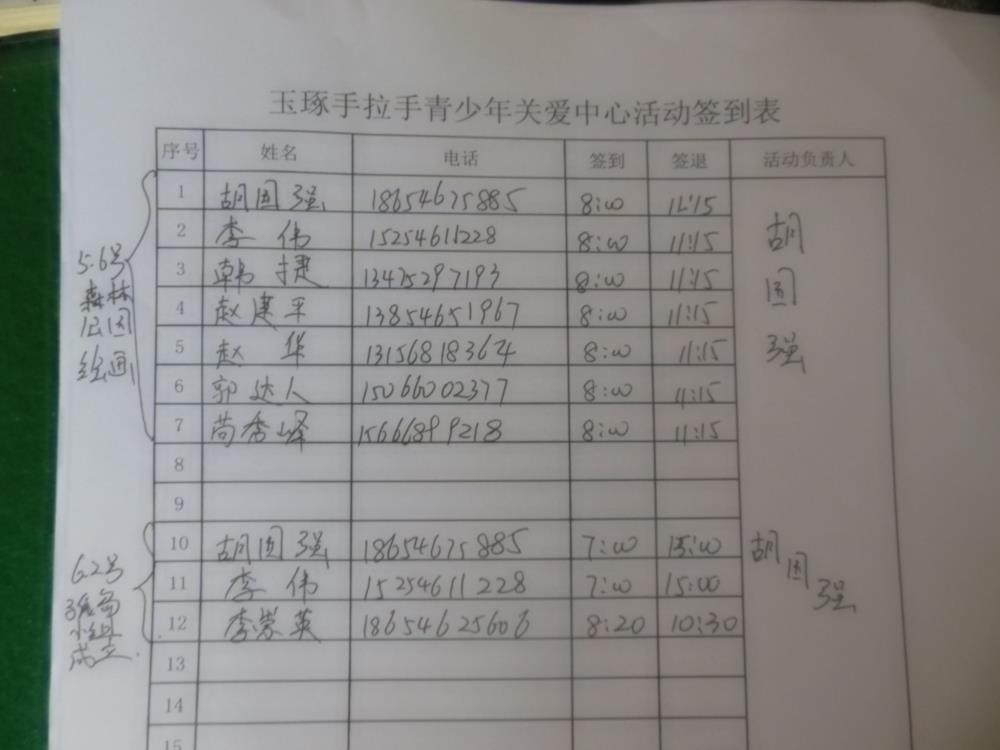 玉琢手拉手青少年关爱中心活动签到表
序号 姓名 电话 签到 签退 活动负责人
1 胡国强 18654675885 8:00 11:15
2 李伟 15254611228 8:00 11:15
3 韩捷 13475297193 8:00 11:15
4 赵建平 13854651967 8:00 11:15
5 赵华 13156818364 8:00 11:15
6 郭达人 15066002377 8:00 11:15
7 苘秀峰 15666899218 8:00 11:15
胡国强
5.6号
森林
公园
绘画
8
9
10 胡国强 18654675885 7:00 15:00
11 李伟 15254611228 7:00 15:00
12 李崇英 18654625606 8:20 10:30
胡国强
6.2号
小组
成立
13
14
15